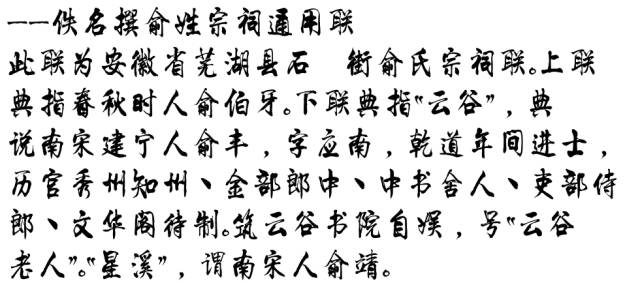 ——佚名撰俞姓宗祠通用联
此联为安徽省芜湖县石 街俞氏宗祠联。上联
典指春秋时人俞伯牙。下联典指“云谷”，典
说南宋建宁人俞丰，字应南，乾道年间进士，
历官秀州知州、金部郎中、中书舍人、吏部侍
郎、文华阁待制。筑云谷书院自娱，号“云谷
老人”。“星溪”，谓南宋人俞靖。